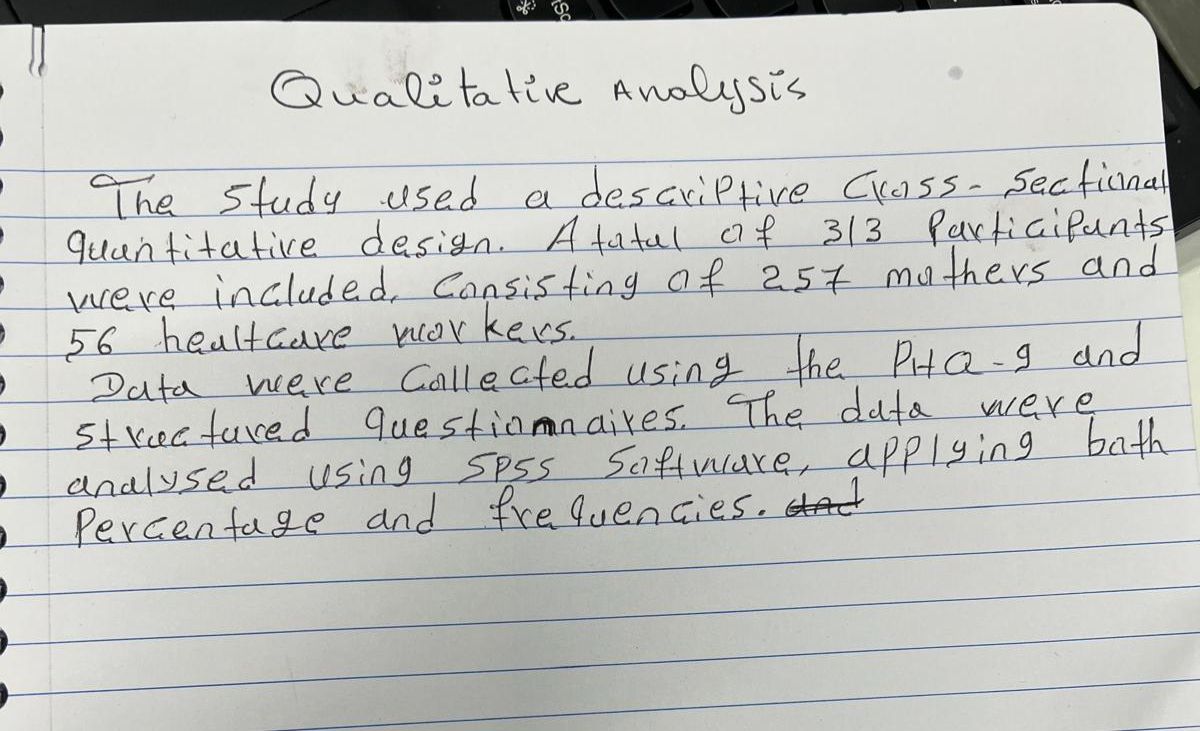 Qualitative Analysis
The study used a descriptive Cross-Sectional
quantitative design. A total of 313 Participants
were included, Consisting of 257 mothers and
56 healtcare workers.
Data were Collected using the PHQ-9 and
structured questionnaires. The data were
analysed using SPSS Software, applying both
Percentage and frequencies. and